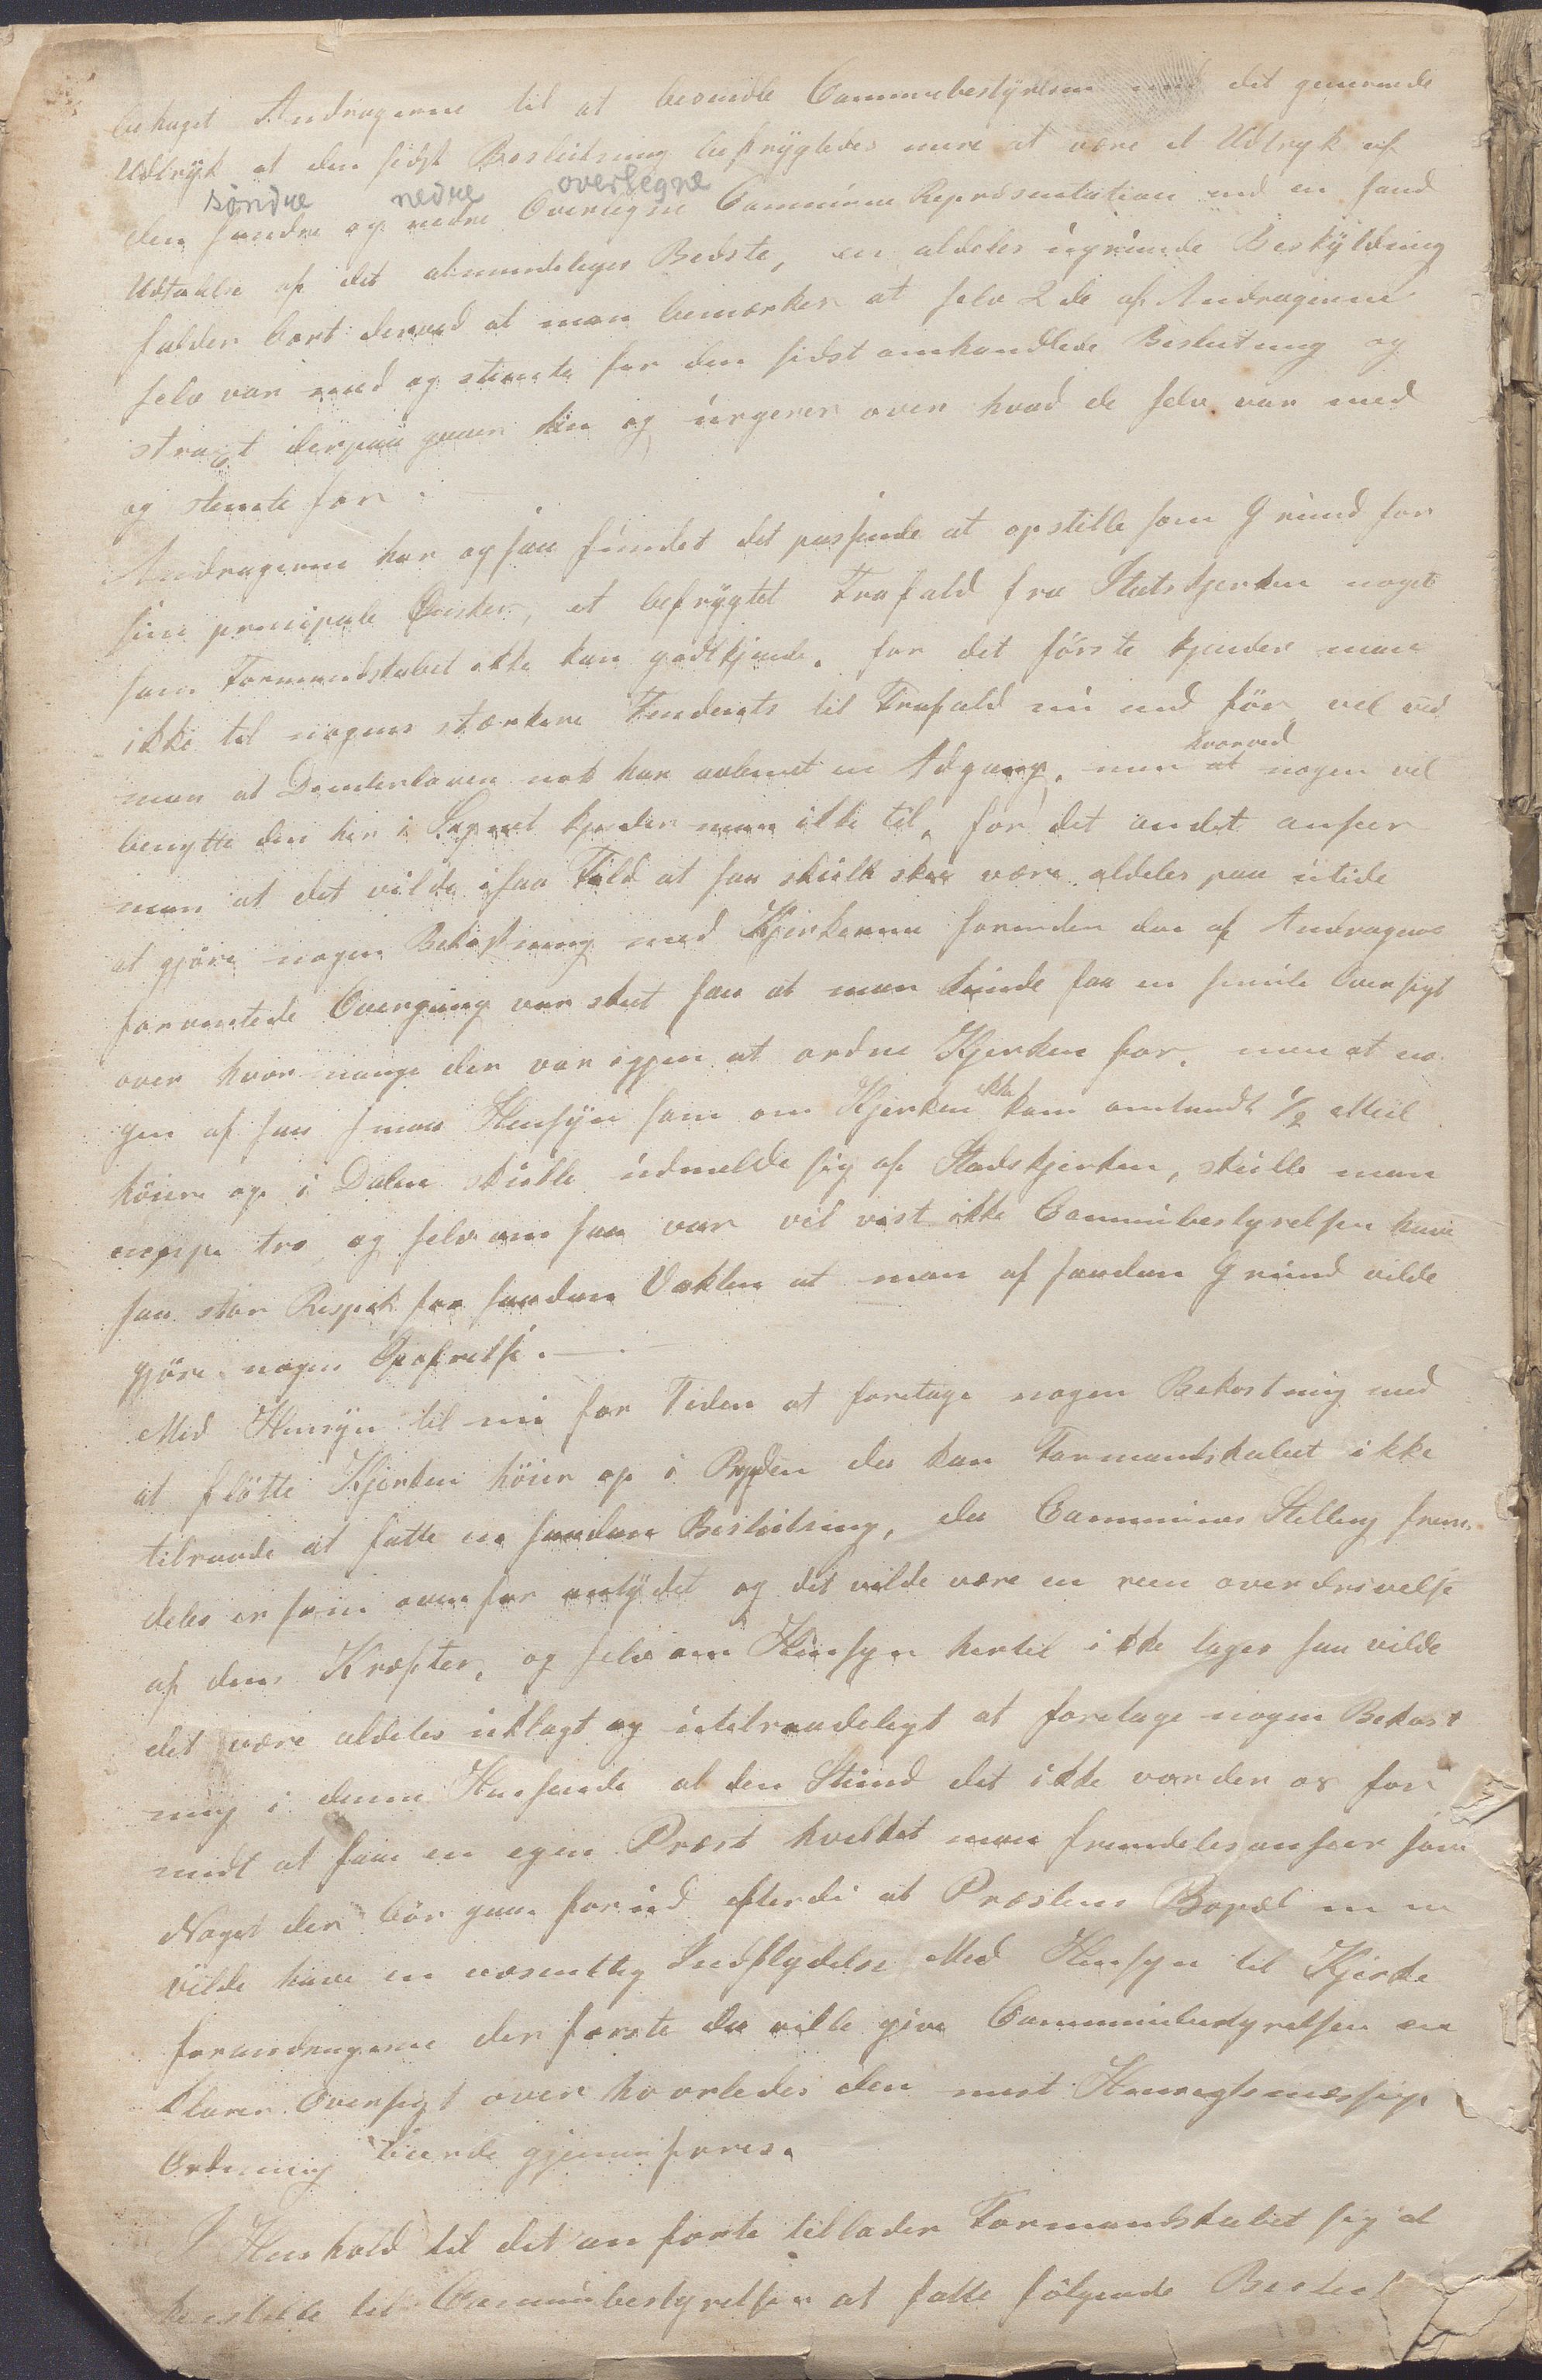 behaget Andragerne til at besmdle Communebestyrelsen med det generende
Udtryk at den sidste Beslutning befrygtedes mere at være et Udtryk af
søndre nedre oversegne
den søndre og nedre Oversegne Commune Repræsentation end en sand
Udtalelse af det almindeliges Bedste, en aldeles ugrunde Beskyldning
falder bort derved at man bemærker at selv 2de af Andragerne
selv var med og stemte for den sidst omhandlede Beslutning og
straxt derpaa gaaer hen og urgerer over hvad de selv var med
og stemte for.
Andragerne har ogsaa fundet det passende at opstille som Grund for
sine principale Ønsker, et befrygtet Frafald fra Statskjerken noget
som Formandskabet ikke kan godtkjende. for det første kjender man
ikke til nogens stærkere Tendents til Frafald nu end før, vel ved
man at Dissenterloven nok har aabnet en Adgang, men at nogen vil
hvorved
benytte den her i Sognet kjender man ikke til, for det andet anseer
man at det vilde isaa Fald at saa skulle skee være aldeles paa utide
at gjøre nogen Bekostning med Kjerkerne forinden den af Andragerne
forventede Overgang var skeet saa at man kunde faa en Oversigt
over hvor mange der var igjen at ordne Kjerken for, men at no
gen af saa smaa Hensyn som om Kjerken ikke kom omtrendt 1/2 Miil
høiere op i Dalen skulle udmelde sig af Stadskjerken, skulle man
neppe tro og selv om saa var vil vist ikke Communebestyrelsen have
saa stor Respek for saadan Vaklen at man af saadan Grund vilde
gjøre nogen Opofrelse.
Med Hensyn til nu for Tiden at foretage nogen Bekostning med
at fløtte Kjerken høier op i Bygden da kan Formandskabet ikke
tilraade at fatte en saadan Beslutning, da Communens Stilling frem
deles er som ovenfor antydet og det vilde være en reen overdrivelse
af dens Kræfter, og selv om Hensyn hertil ikke tages saa vilde
det være aldeles uklogt og utilraadeligt at foretage nogen Bekost
ning i denne Henseende al den Stund det ikke vorder os for
undt at faae en egen Præst hvilket man fremdeles anseer som
Noget der bør gaae forud efterdi at Præstens Bopæl
vilde have en væsentlig Indflydelse Med Hensyn til Kjerke
forandringerne der første da ville give Communebestyrelsen en
klarer Oversigt over hvorledes den mest Hensigtsmæssige
Ordning burde gjennemføres.
I Henhold til det anførte tillader Formandskabet sig at
henstille til Communebestyrelsen at fatte følgende Beslut